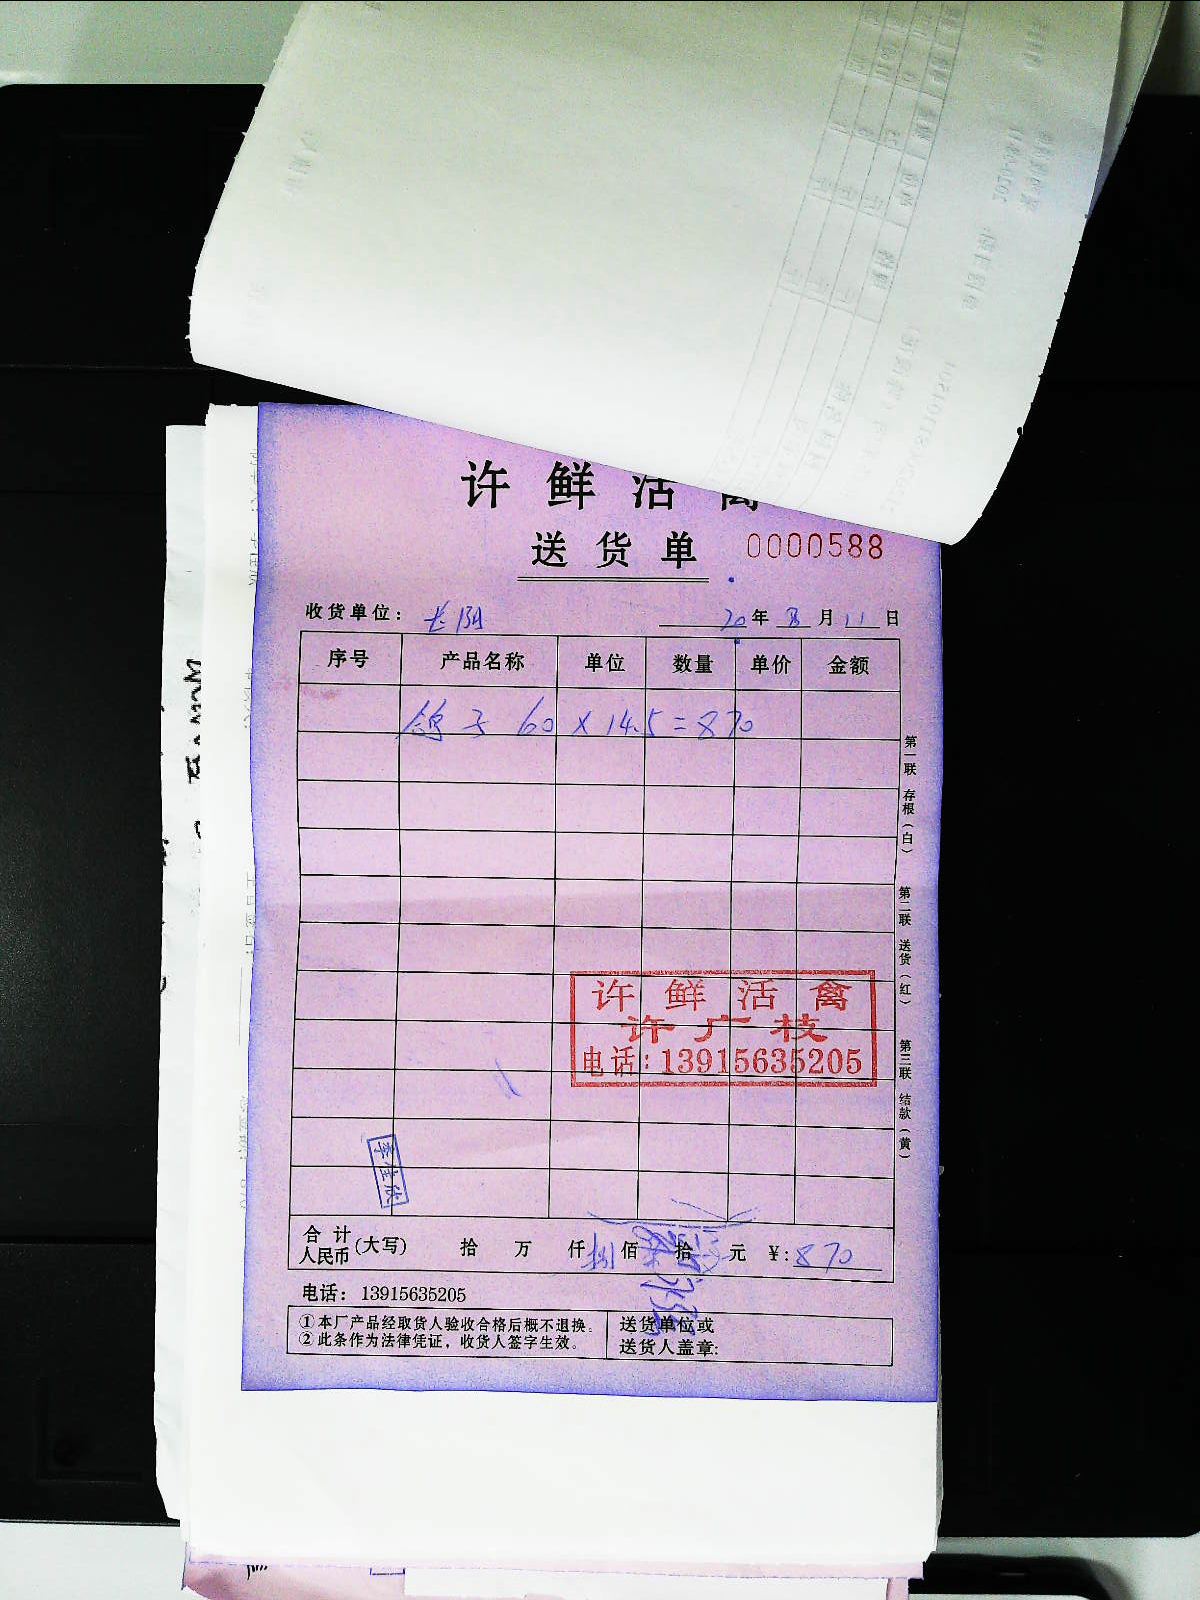 许鲜活禽
送货单 0000588
收货单位： 长阴 20年8月11日
序号 产品名称 单位 数量 单价 金额
鸽子 60 × 14.5 = 870
第一联 存根（白）
第二联 送货（红）
第三联 结款（黄）
许鲜活禽
许广枝
电话：13915635205
合计人民币（大写） 拾 万 仟 捌 佰 拾 元 ¥：870
电话：13915635205
①本厂产品经取货人验收合格后概不退换。
②此条作为法律凭证，收货人签字生效。
送货单位或
送货人盖章：